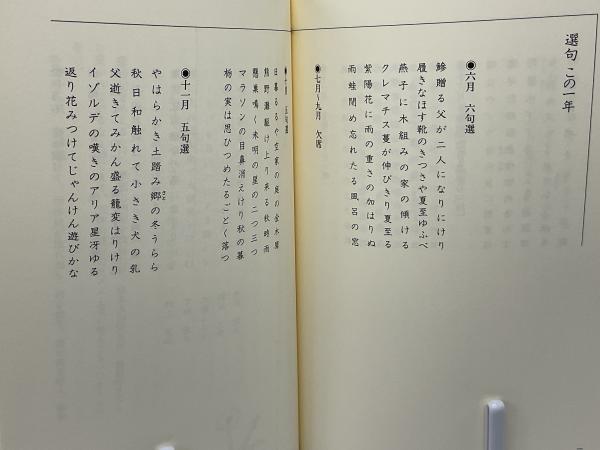 選句 この一年
●六月 六句選
鰺贈る父が二人になりにけり
履きなほす靴のきつさや夏至ゆふべ
燕子に木組みの家の傾ける
クレマチス蔓が伸びきり夏至る
紫陽花に雨の重さの加はりぬ
雨蛙閉め忘れたる風呂の窓
●七月〜九月 欠席
●十月 五句選
日暮るるや空家の庭の金木犀
熊野灘駆け上り来る秋時雨
懸巣鳴く未明の星の二つ三つ
マラソンの目鼻消えけり秋の暮
栃の実は思ひつめたるごとく落つ
●十一月 五句選
やはらかき土踏み郷の冬うらら
秋日和触れて小さき犬の乳
父逝きてみかん盛る籠変はりけり
イゾルデの嘆きのアリア星冴ゆる
返り花みつけてじゃんけん遊びかな